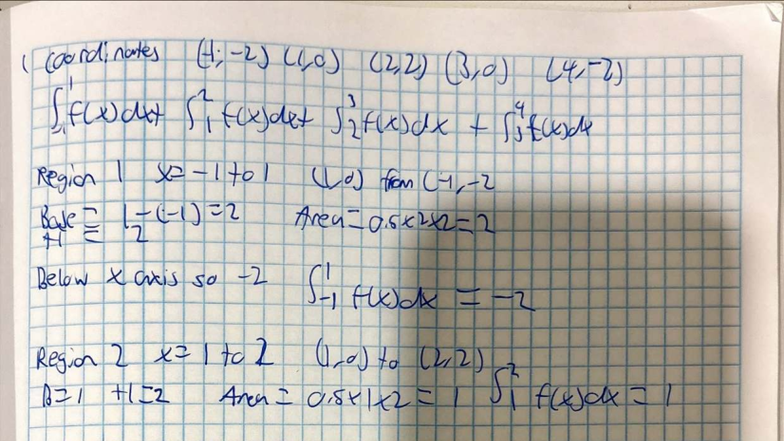 ( Coordinates (-1, -2) (1,0) (2,2) (3,0) (4,-2)
∫₋₁¹ f(x)dx + ∫₁² f(x)dx + ∫₂³ f(x)dx + ∫₃⁴ f(x)dx
Region 1 x = -1 to 1 (1,0) from (-1, -2
Base = 1-(-1) = 2 Area = 0.5x2x2 = 2
H = 2
Below x axis so -2 ∫₋₁¹ f(x)dx = -2
Region 2 x = 1 to 2 (1,0) to (2,2)
B=1 H=2 Area = 0.5x1x2 = 1 ∫₁² f(x)dx = 1